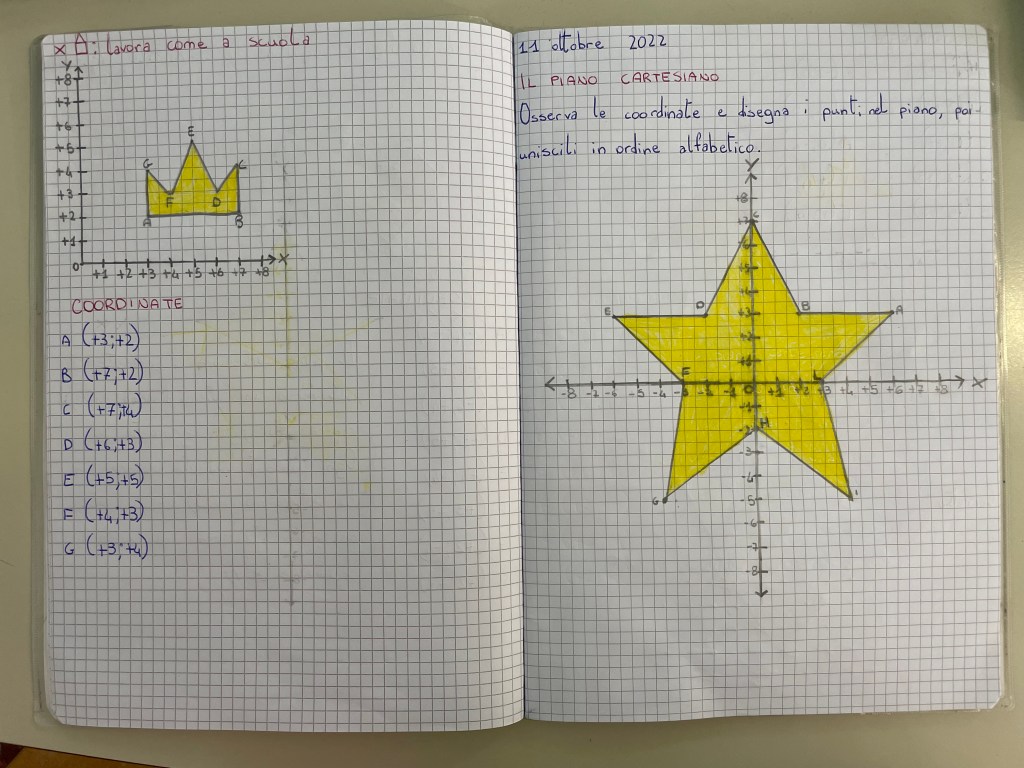 x : lavora come a scuola
Y
+8
+7
+6
E
+5
G +4 C
+3 F D
+2
A B
+1
0 +1 +2 +3 +4 +5 +6 +7 +8 X
COORDINATE
A (+3;+2)
B (+7;+2)
C (+7;+4)
D (+6;+3)
E (+5;+5)
F (+4;+3)
G (+3;+4)
11 ottobre 2022
IL PIANO CARTESIANO
Osserva le coordinate e disegna i punti nel piano, poi
uniscili in ordine alfabetico.
Y
+8
+7 C
+6
+5
+4
E D +3 B A
+2
+1
F L
-8 -7 -6 -5 -4 -3 -2 -1 0 +1 +2 +3 +4 +5 +6 +7 +8 X
-1
-2 H
-3
-4
G -5 I
-6
-7
-8